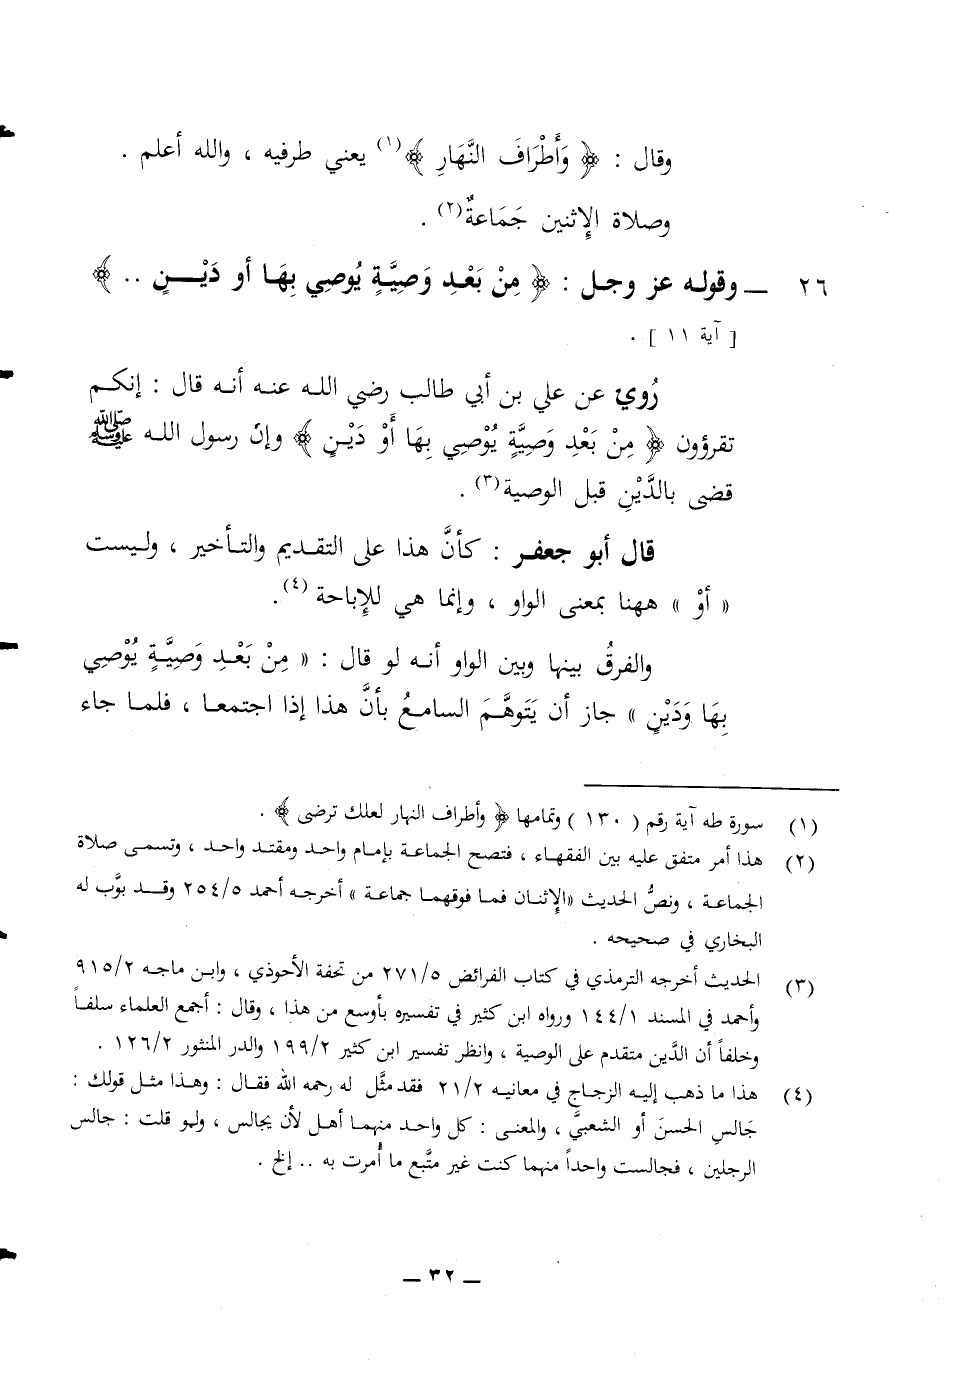 وقال : ﴿ وَأَطْرَافَ النَّهَارِ ﴾(١) يعني طرفيه ، والله أعلم .
وصلاة الإثنين جَمَاعةٌ(٢) .
٢٦ ــ وقوله عز وجل : ﴿ مِنْ بَعْدِ وَصِيَّةٍ يُوصِي بِهَا أو دَيْنٍ .. ﴾
[ آية ١١ ] .
رُوي عن علي بن أبي طالب رضي الله عنه أنه قال : إنكم
تقرؤون ﴿ مِنْ بَعْدِ وَصِيَّةٍ يُوْصِي بِهَا أَوْ دَيْنٍ ﴾ وإن رسول الله ﷺ
قضى بالدَّيْنِ قبل الوصية(٣) .
قال أبو جعفر : كأنَّ هذا على التقديم والتأخير ، وليست
« أوْ » ههنا بمعنى الواو ، وإنما هي للإباحة (٤).
والفرقُ بينها وبين الواو أنه لو قال : « مِنْ بَعْدِ وَصِيَّةٍ يُوْصِي
بِهَا وَدَيْنٍ » جاز أن يَتَوهَّمَ السامعُ بأنَّ هذا إذا اجتمعا ، فلما جاء
(١) سورة طه آية رقم ( ١٣٠ ) وتمامها ﴿ وأطراف النهار لعلك ترضى ﴾ .
(٢) هذا أمر متفق عليه بين الفقهاء ، فتصح الجماعة بإمام واحد ومقتد واحد ، وتسمى صلاة
الجماعة ، ونصُّ الحديث «الإثنان فما فوقهما جماعة » أخرجه أحمد ٢٥٤/٥ وقد بوَّب له
البخاري في صحيحه .
(٣) الحديث أخرجه الترمذي في كتاب الفرائض ٢٧١/٥ من تحفة الأحوذي ، وابن ماجه ٩١٥/٢
وأحمد في المسند ١٤٤/١ ورواه ابن كثير في تفسيره بأوسع من هذا ، وقال : أجمع العلماء سلفاً
وخلفاً أن الدَّين متقدم على الوصية ، وانظر تفسير ابن كثير ١٩٩/٢ والدر المنثور ١٢٦/٢ .
(٤) هذا ما ذهب إليه الزجاج في معانيه ٢١/٢ فقد مثَّل له رحمه الله فقال : وهذا مثل قولك :
جَالسِ الحسنَ أو الشعبيَّ ، والمعنى : كل واحد منهما أهل لأن يجالس ، ولو قلت : جالس
الرجلين ، فجالست واحداً منهما كنت غير متَّبع ما أُمرت به .. إلخ .
ــ ٣٢ ــ